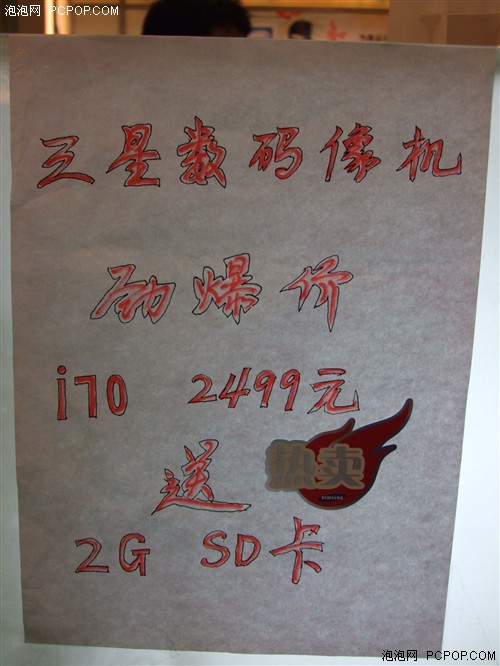 泡泡网 PCPOP.COM
三星数码像机
劲爆价
i70 2499元
送
热卖
SAMSUNG
2G SD卡
泡泡网 PCPOP.COM